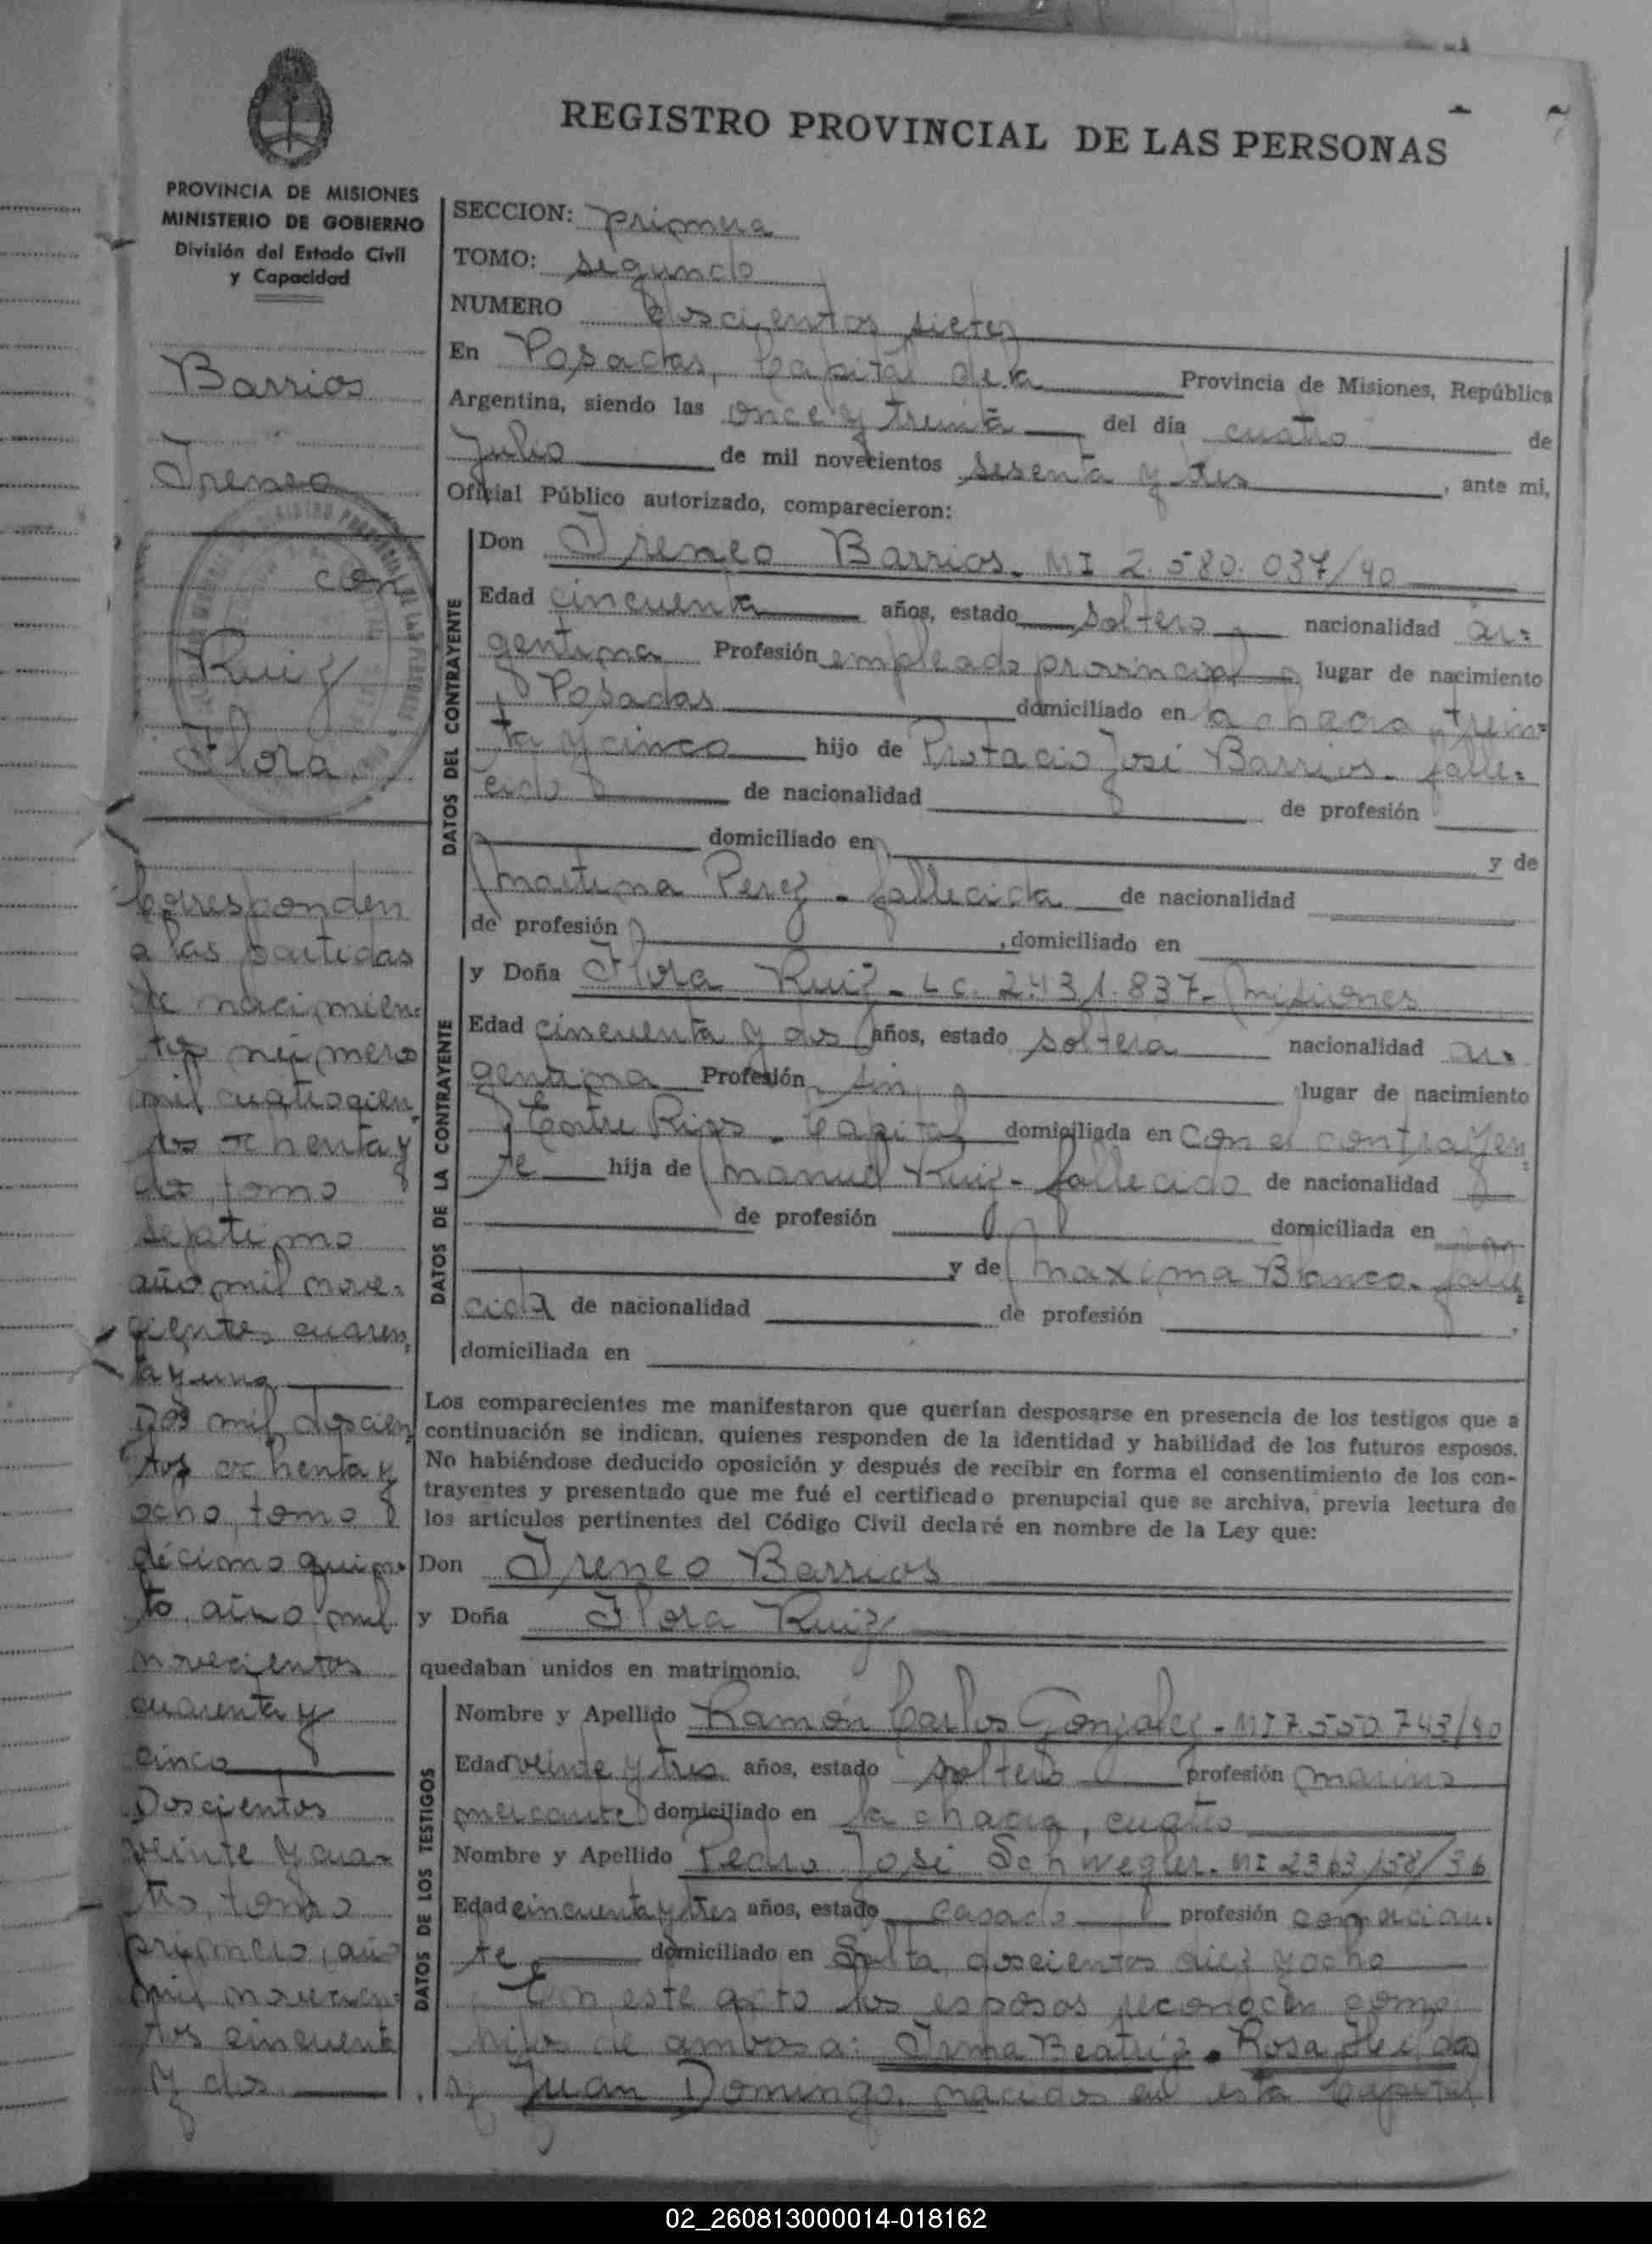 REGISTRO PROVINCIAL DE LAS PERSONAS
PROVINCIA DE MISIONES
MINISTERIO DE GOBIERNO
División del Estado Civil
y Capacidad
Barrios
Ireneo
con
Ruiz
Flora
Corresponden
a las partidas
de nacimien-
tos número
mil cuatrocien
tos ochenta y
dos, tomo
septimo
año mil nove-
cientos cuaren
ta y uno
Dos mil doscien
tos ochenta y
ocho, tomo
décimo quin-
to, año mil
novecientos
cuarenta y
cinco
Doscientos
veinte y cua-
tro, tomo
primero, año
mil novecien-
tos cincuenta
y dos
SECCION: primera
TOMO: segundo
NUMERO doscientos siete
En Posadas, Capital de la Provincia de Misiones, República
Argentina, siendo las once y treinta del día cuatro de
Julio de mil novecientos sesenta y tres, ante mi,
Oficial Público autorizado, comparecieron:
DATOS DEL CONTRAYENTE
Don Ireneo Barrios. MI 2.580.037/40
Edad cincuenta años, estado soltero nacionalidad ar-
gentina Profesión empleado provincial lugar de nacimiento
Posadas domiciliado en la chacra trein-
ta y cinco hijo de Protacio José Barrios - falle-
cido de nacionalidad de profesión
domiciliado en y de
Martina Perez - fallecida de nacionalidad
de profesión , domiciliado en
DATOS DE LA CONTRAYENTE
y Doña Flora Ruiz - LC. 2.431.837 - Misiones
Edad cincuenta y dos años, estado soltera nacionalidad ar-
gentina Profesión sin lugar de nacimiento
Entre Rios - Capital domiciliada en con el contrayen
te hija de Manuel Ruiz - fallecido de nacionalidad
de profesión domiciliada en
y de Maxima Blanco - falle
cida de nacionalidad de profesión ,
domiciliada en
Los comparecientes me manifestaron que querían desposarse en presencia de los testigos que a
continuación se indican, quienes responden de la identidad y habilidad de los futuros esposos.
No habiéndose deducido oposición y después de recibir en forma el consentimiento de los con-
trayentes y presentado que me fué el certificado prenupcial que se archiva, previa lectura de
los artículos pertinentes del Código Civil declaré en nombre de la Ley que:
Don Ireneo Barrios
y Doña Flora Ruiz
quedaban unidos en matrimonio.
DATOS DE LOS TESTIGOS
Nombre y Apellido Ramón Carlos Gonzalez - MI 7.550.743/40
Edad veinte y tres años, estado soltero profesión marino
mercante domiciliado en la chacra, cuatro
Nombre y Apellido Pedro José Schwegler - MI
Edad cincuenta y tres años, estado casado profesión comercian-
te domiciliado en Salta doscientos diez y ocho
En este acto los esposos reconocen como
hijos de ambos a: Irma Beatriz - Rosa
y Juan Domingo, nacidos en esta Capital
02_260813000014-018162